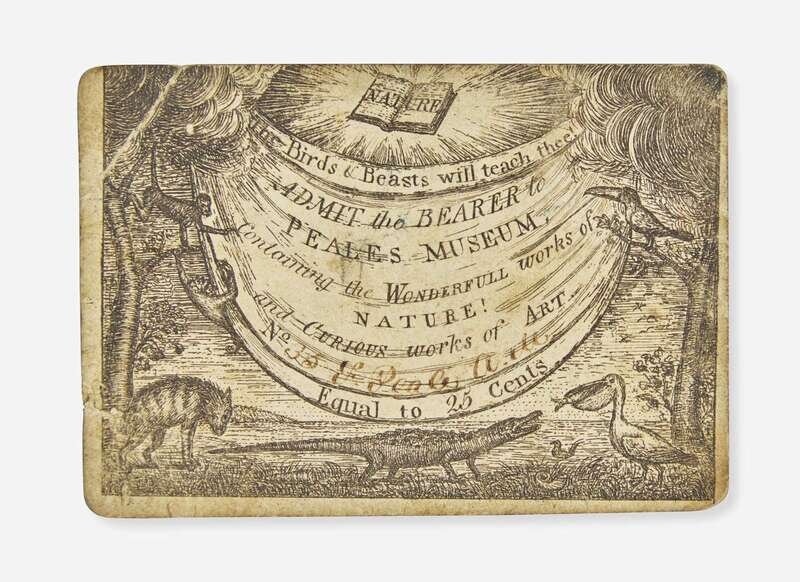 NATURE
The Birds & Beasts will teach thee!
ADMIT the BEARER to
PEALES MUSEUM,
Containing the WONDERFULL works of
NATURE!
and CURIOUS works of ART.
No. 35
Equal to 25 Cents